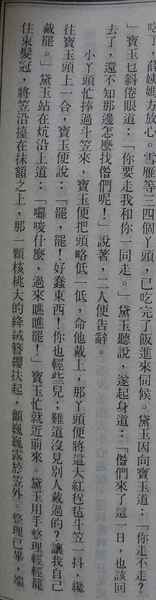 吃了。薛姨媽方放心。雪雁等三四個丫頭，已吃完了飯進來伺候。黛玉因向寶玉道：「你走不走？
」寶玉乜斜倦眼道：「你要走我和你一同走。」黛玉聽說，遂起身道：「偺們來了這一日，也該回
去了，還不知那邊怎麼找偺們呢！」說著，二人便告辭。
小丫頭忙捧過斗笠來，寶玉便把頭略低一低，命他戴上，那丫頭便將這大紅猩毡斗笠一抖，纔
往寶玉頭上一合，寶玉便說：「罷，罷！好蠢東西！你也輕些兒；難道沒見別人戴過的？讓我自己
戴罷。」黛玉站在炕沿上道：「囉唆什麼，過來瞧瞧罷！」寶玉忙就近前來，黛玉用手整理輕輕籠
住束髮冠，將笠沿掖在抹額之上，那一顆核桃大的絳絨簪纓扶起，顫巍巍露於笠外，整理已畢，端